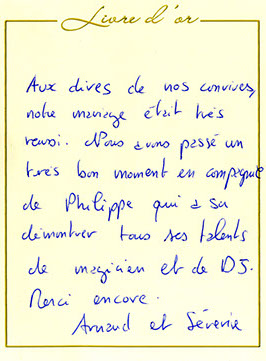 Livre d'or
Aux dires de nos convives,
notre mariage était très
réussi. Nous avons passé un
très bon moment en compagnie
de Philippe qui a su
démontrer tous ses talents
de magicien et de DJ.
Merci encore.
Arnaud et Séverine